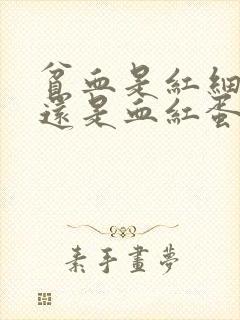 貧血是紅細
還是血紅蛋
素手畫夢